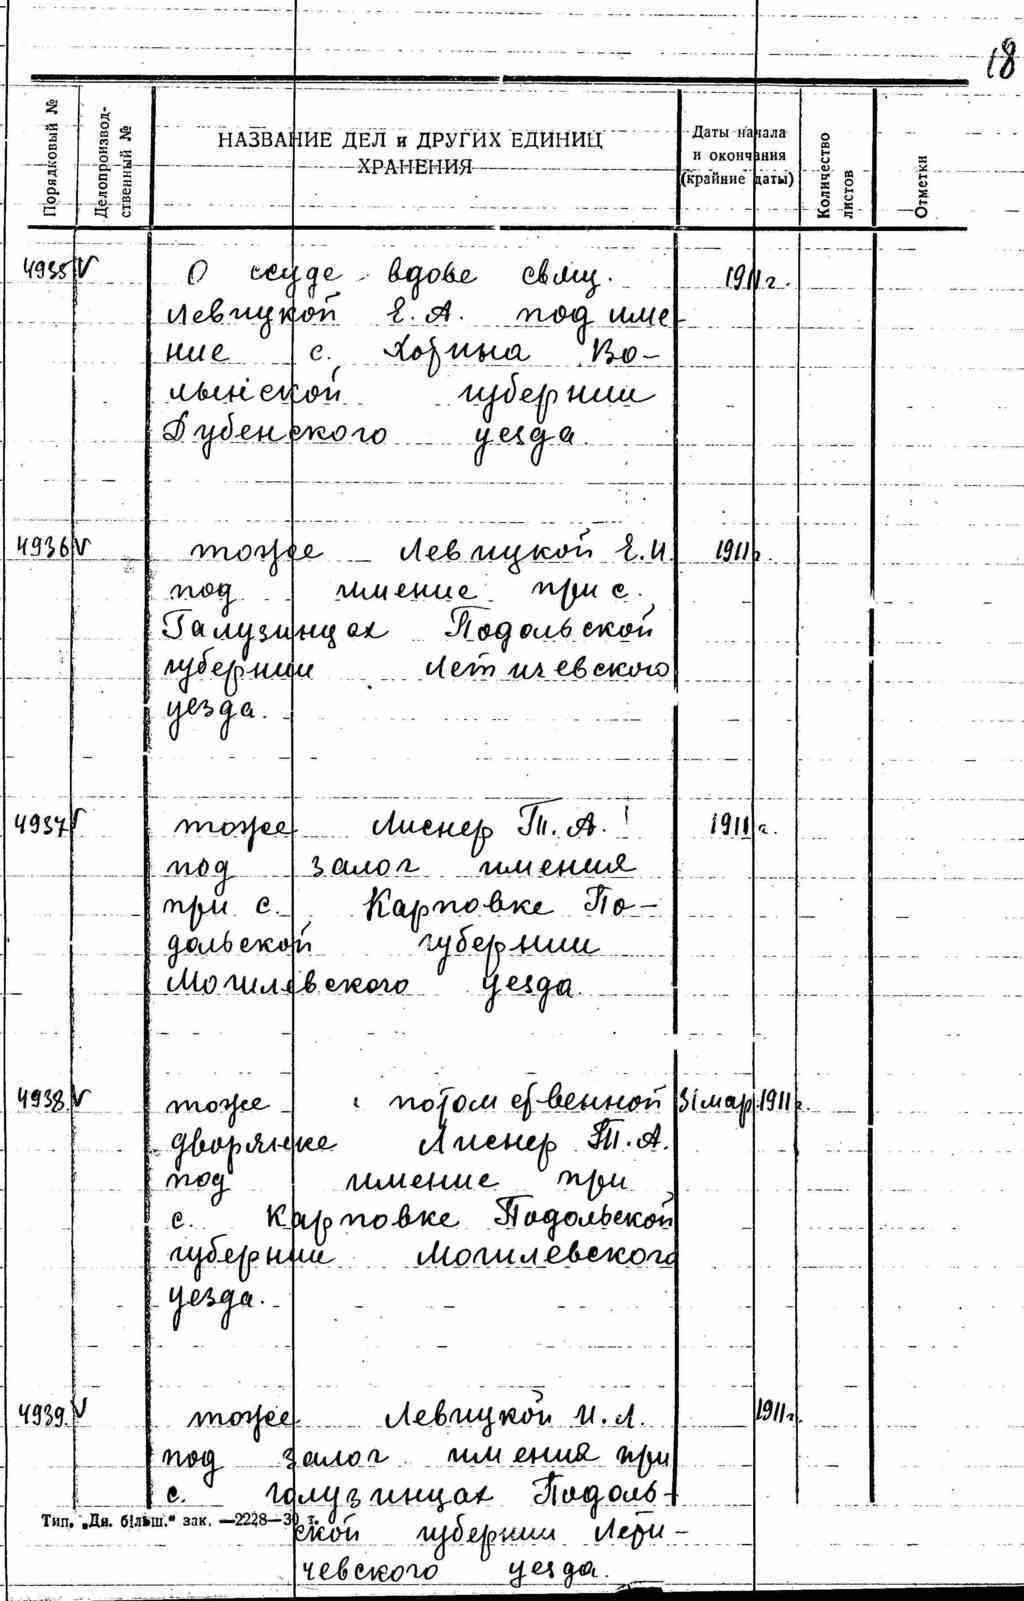 18
Порядковый №
Делопроизвод-
ственный №
НАЗВАНИЕ ДЕЛ и ДРУГИХ ЕДИНИЦ
ХРАНЕНИЯ
Даты начала
и окончания
(крайние даты)
Количество
листов
Отметки
4935 V О ссуде вдове свящ. 1911 г.
Левицкой Е. А. под име
ние с. Хотина Во-
лынской губернии
Дубенского уезда.
4936 V тоже Левицкой Е. И. 1911 г.
под имение при с.
Галузинцах Подольской
губернии Летичевского
уезда.
4937 V тоже Лиснер Т. А. 1911 г.
под залог имения
при с. Карповке По-
дольской губернии
Могилевского уезда.
4938 V тоже потомственной 31 мар. 1911 г.
дворянке Лиснер Т. А.
под имение при
с. Карповке Подольской
губернии Могилевского
уезда.
4939 V тоже Левицкой И. Л. 1911 г.
под залог имения при
с. Галузинцах Подоль-
ской губернии Лети-
чевского уезда.
Тип. „Дн. більш." зак. —2228—30 г.